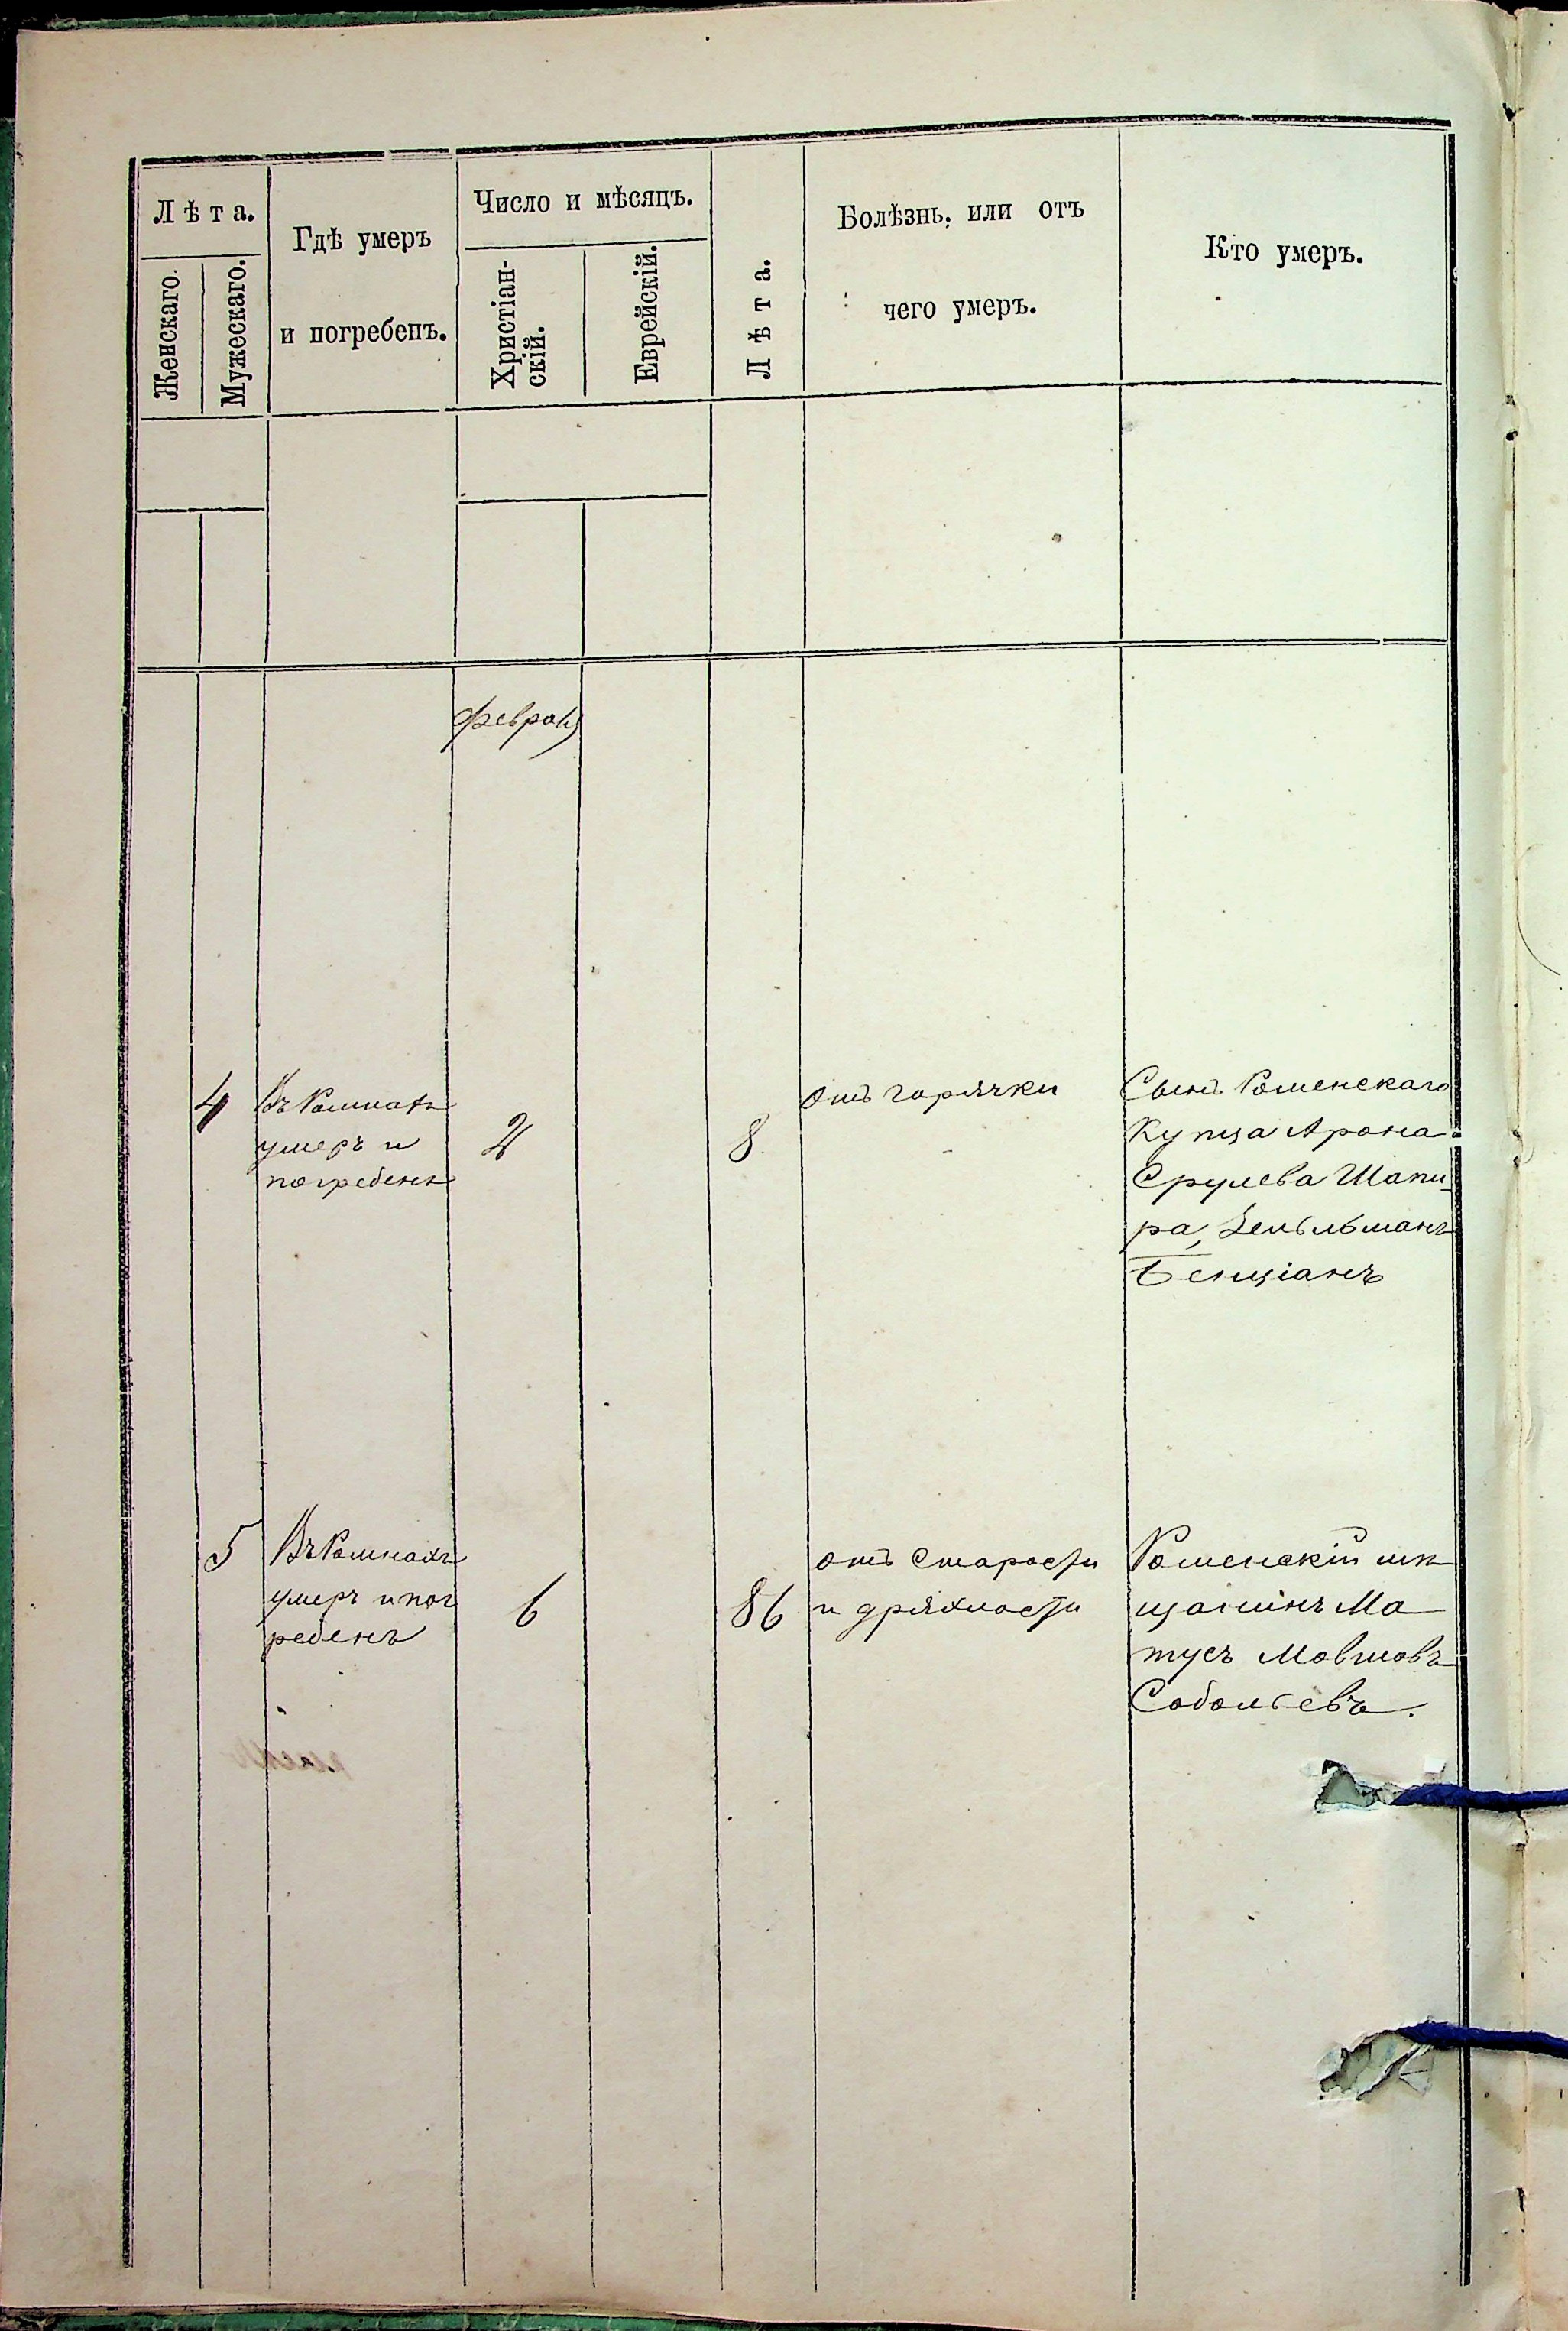 Лѣта.
Женскаго.
Мужескаго.
Гдѣ умеръ
и погребенъ.
Число и мѣсяцъ.
Христіан-
скій.
Еврейскій.
Лѣта.
Болѣзнь, или отъ
чего умеръ.
Кто умеръ.
февраля
4
Въ Ромнахъ
умеръ и
погребенъ
2
8
отъ горячки
Сынъ Роменскаго
Купца Арона
Срулева Шапи
ра,
Бенціанъ
5
Въ Ромнахъ
умеръ и пог
ребенъ
6
86
отъ старости
и дряхлости
Роменскій мѣ
щанинъ Ма
тусъ Мовшовъ
Собольевъ.